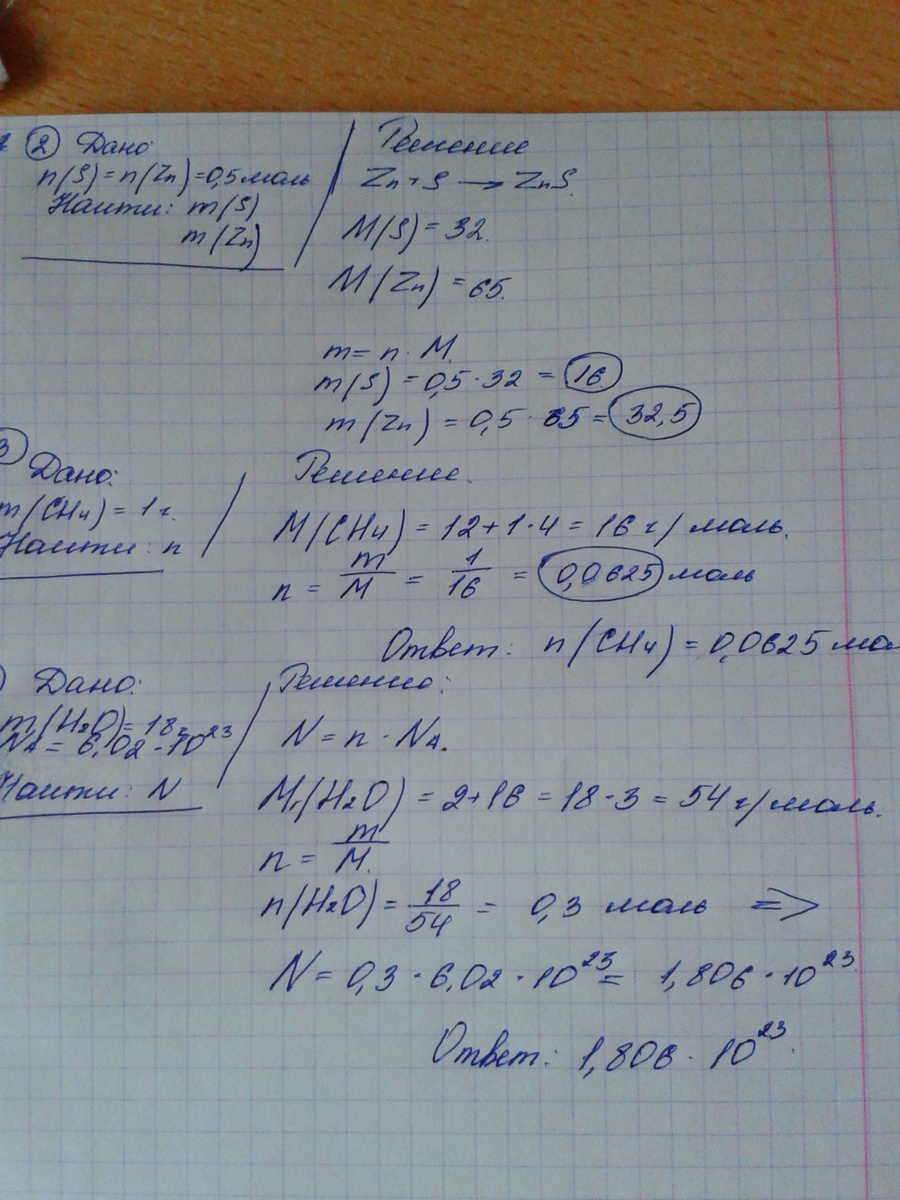 ② Дано:
n(S) = n(Zn) = 0,5 моль
Найти: m(S)
m(Zn)
Решение
Zn + S → ZnS.
M(S) = 32.
M(Zn) = 65.
m = n · M.
m(S) = 0,5 · 32 = 16
m(Zn) = 0,5 · 65 = 32,5
3
Дано:
m(CH₄) = 1 г.
Найти: n
Решение.
M(CH₄) = 12 + 1 · 4 = 16 г/моль.
n = m/M = 1/16 = 0,0625 моль
Ответ: n(CH₄) = 0,0625 мол
Дано:
m(H₂O) = 18г
NA = 6,02 · 10²³
Найти: N
Решение:
N = n · NA.
Mr(H₂O) = 2 + 16 = 18 · 3 = 54 г/моль.
n = m/M.
n(H₂O) = 18/54 = 0,3 моль =>
N = 0,3 · 6,02 · 10²³ = 1,806 · 10²³.
Ответ: 1,806 · 10²³.